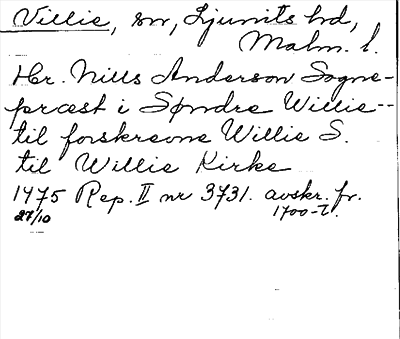 Villie, sn, Ljunits hd,
Malm. l.
Hr. Nills Anderson Sogne-
præst i Søndre Willie--
til forskrevne Willie S.
til Willie Kirke
1475 Rep. II nr 3731. avskr. fr.
27/10 1700-t.